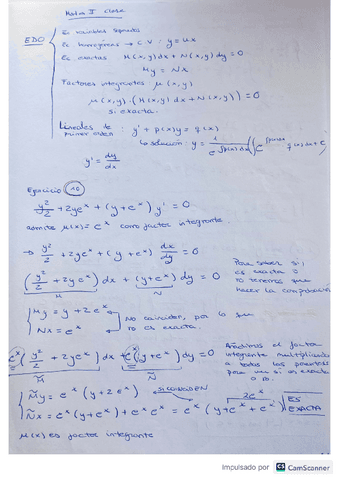 Mates I clase
EDO
Ec variables separadas
Ec homogéneas → C.V: y = ux
Ec exactas M(x,y)dx + N(x,y)dy = 0
My = Nx
Factores integrantes μ(x,y)
μ(x,y)·(M(x,y)dx + N(x,y)) = 0
si exacta.
Lineales de primer orden y' + p(x)y = q(x)
la solución: y = 1/e^∫p(x)dx
y' = dy/dx
Ejercicio 10
y²/2 + 2ye^x + (y + e^x) y' = 0
admite μ(x) = e^x como factor integrante
→ y²/2 + 2ye^x + (y + e^x) dx/dy = 0
Para saber si es exacta o no tenemos que hacer la comprobación
(y²/2 + 2ye^x) dx + (y + e^x) dy = 0
M N
My = y + 2e^x
Nx = e^x
No coinciden, por lo que no es exacta.
Añadimos el factor integrante multiplicando a todos los paréntesis para ver si es exacta o no.
e^x (y²/2 + 2ye^x) dx + e^x (y + e^x) dy = 0
M̃ Ñ
M̃y = e^x (y + 2e^x)
SI COINCIDEN
2e^x
Ñx = e^x (y + e^x) + e^x e^x = e^x (y + e^x + e^x)
ES EXACTA
μ(x) es factor integrante
Impulsado por CS CamScanner